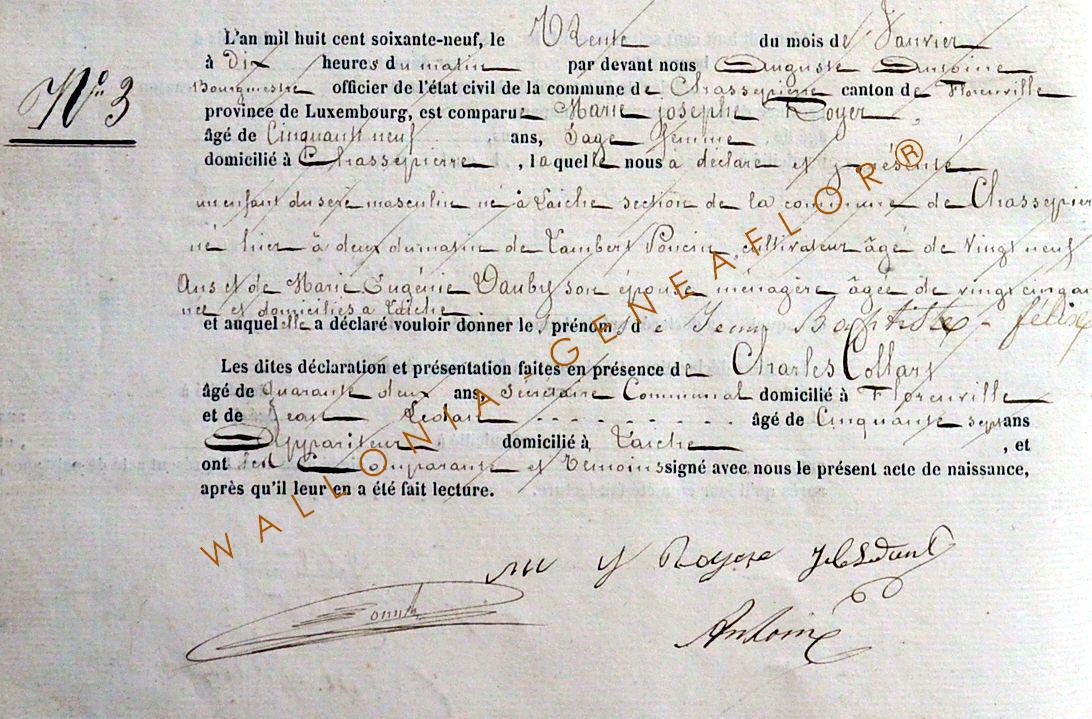 N° 3
L'an mil huit cent soixante-neuf, le Trente du mois de Janvier
à Dix heures du matin par devant nous Auguste Antoine
Bourgmestre officier de l'état civil de la commune de Chassepierre canton de Florenville
province de Luxembourg, est comparue Marie josephe Royer,
âgé de Cinquante neuf ans, Sage femme
domicilié à Chassepierre, laquelle nous a déclaré et présenté
un enfant du sexe masculin né à Laiche section de la commune de Chassepier
né hier à deux du matin de Lambert Poncin cultivateur âgé de Vingt neuf
Ans et de Marie Eugénie Daubry son épouse ménagère âgée de vingt cinq an
née et domiciliés à Laiche
et auquel elle a déclaré vouloir donner les prénoms de Jean Baptiste - félix
Les dites déclaration et présentation faites en présence de Charles Collart
âgé de quarante deux ans, Secrétaire Communal domicilié à Florenville
et de Jean âgé de Cinquante sept ans
Appariteur domicilié à Laiche, et
ont les Comparante et Témoins signé avec nous le présent acte de naissance,
après qu'il leur en a été fait lecture.
M J Royer
Antoine
WALLONIA-GENEAFLOR®